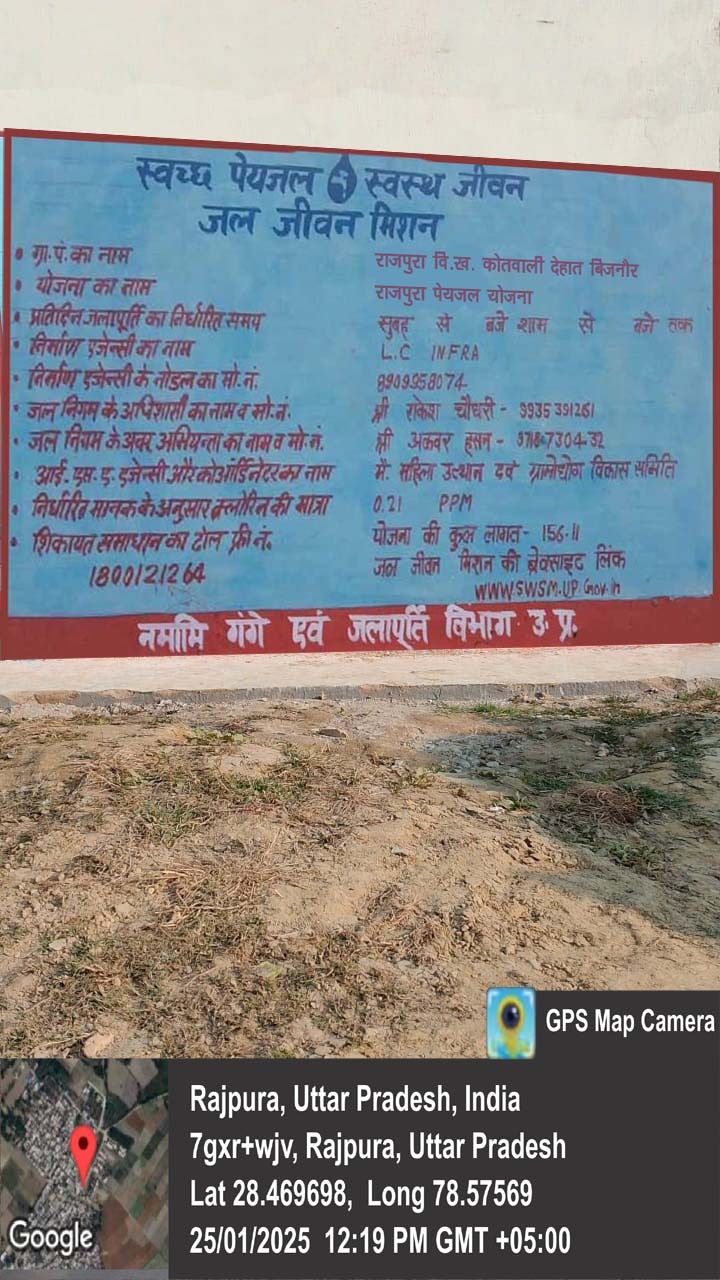 स्वच्छ पेयजल स्वस्थ जीवन
जल जीवन मिशन
• ग्रा.पं.का नाम राजपुरा वि.ख. कोतवाली देहात बिजनौर
• योजना का नाम राजपुरा पेयजल योजना
• प्रतिदिन जलापूर्ति का निर्धारित समय सुबह से बजे शाम से बजे तक
• निर्माण एजेन्सी का नाम L.C INFRA
• निर्माण एजेन्सी के नोडल का मो.नं. 8909958074
• जल निगम के अधिशासी का नाम व मो.नं. श्री राकेश चौधरी - 9935391261
• जल निगम के अवर अभियन्ता का नाम व मो.नं. श्री अकबर हसन - 9718-7304-32
• आई.एस.ए. एजेन्सी और कोऑर्डिनेटर का नाम मै. महिला उत्थान एवं ग्रामोद्योग विकास समिति
• निर्धारित मानक के अनुसार क्लोरिन की मात्रा 0.21 PPM
• शिकायत समाधान का टोल फ्री नं. योजना की कुल लागत - 156.11
1800121264 जल जीवन मिशन की बेवसाइट लिंक
www.SWSM.UP.Gov.in
नमामि गंगे एवं जलापूर्ति विभाग उ प्र.
GPS Map Camera
Rajpura, Uttar Pradesh, India
7gxr+wjv, Rajpura, Uttar Pradesh
Lat 28.469698, Long 78.57569
25/01/2025 12:19 PM GMT +05:00
Google